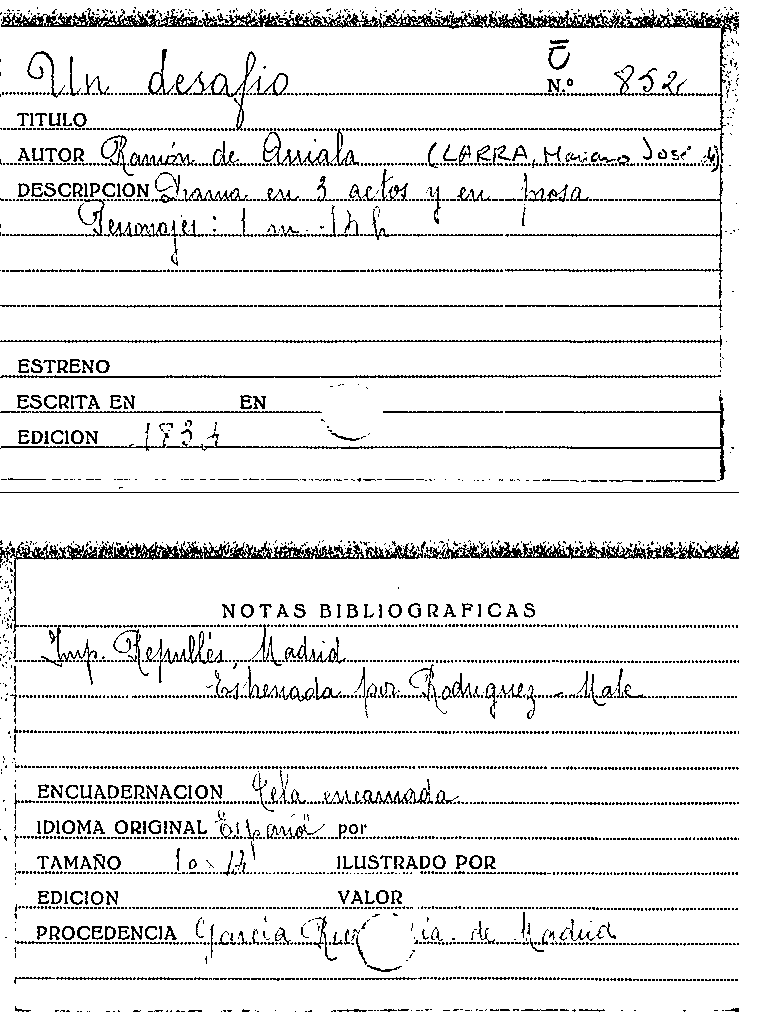 Un desafio
Ū
N.º 852
TITULO
AUTOR Ramón de Arriala (LARRA, Mariano José de)
DESCRIPCION Drama en 3 actos y en prosa
Personajes: 1 m - 12 h
ESTRENO
ESCRITA EN EN
EDICION 1834
NOTAS BIBLIOGRAFICAS
Imp. Repullés, Madrid
Estrenada por Rodriguez - Mate
ENCUADERNACION Tela encarnada
IDIOMA ORIGINAL Español por
TAMAÑO 10 x
ILUSTRADO POR
EDICION VALOR
PROCEDENCIA García de Madrid